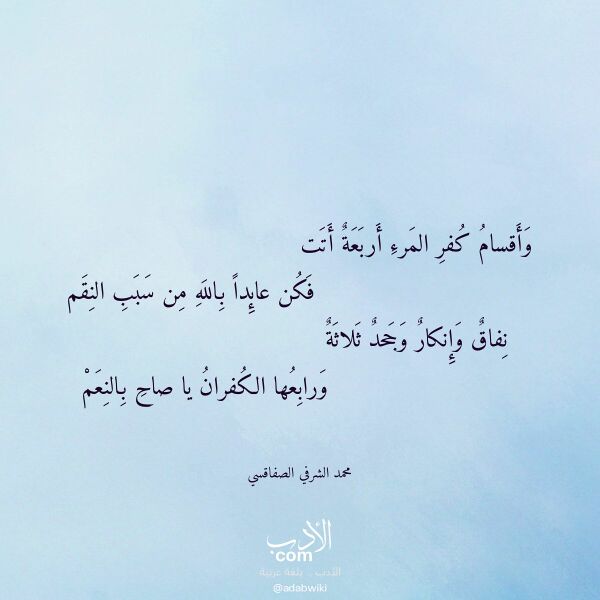 وَأَقسامُ كُفرِ المَرءِ أَربَعَةٌ أَتَت
فَكُن عايِداً بِاللَهِ مِن سَبَبِ النِقَم
نِفاقٌ وَإِنكارٌ وَجَحدٌ ثَلاثَةٌ
وَرابِعُها الكُفرانُ يا صاحِ بِالنِعَمْ
محمد الشرفي الصفاقسي
الأدب
com
الأدب .. بلغة عربية
@adabwiki